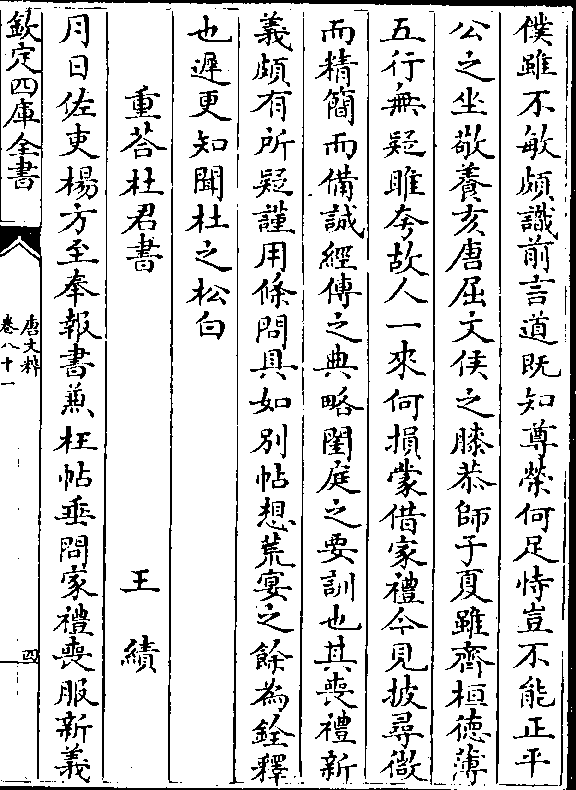 僕雖不敏頗識前言道既知尊榮何足恃豈不能正平
公之坐敬養亥唐屈文侯之膝恭師子夏雖齊桓德薄
五行無疑雎夸故人一來何損蒙借家禮今見披尋微
而精簡而備誠經傳之典略閨庭之要訓也其喪禮新
義頗有所疑謹用條問具如別帖想荒宴之餘為銓釋
也遲更知聞杜之松白
重荅杜君書 王績
月日佐吏楊方至奉報書兼枉帖垂問家禮喪服新義
欽定四庫全書
唐文粹
卷八十一
四